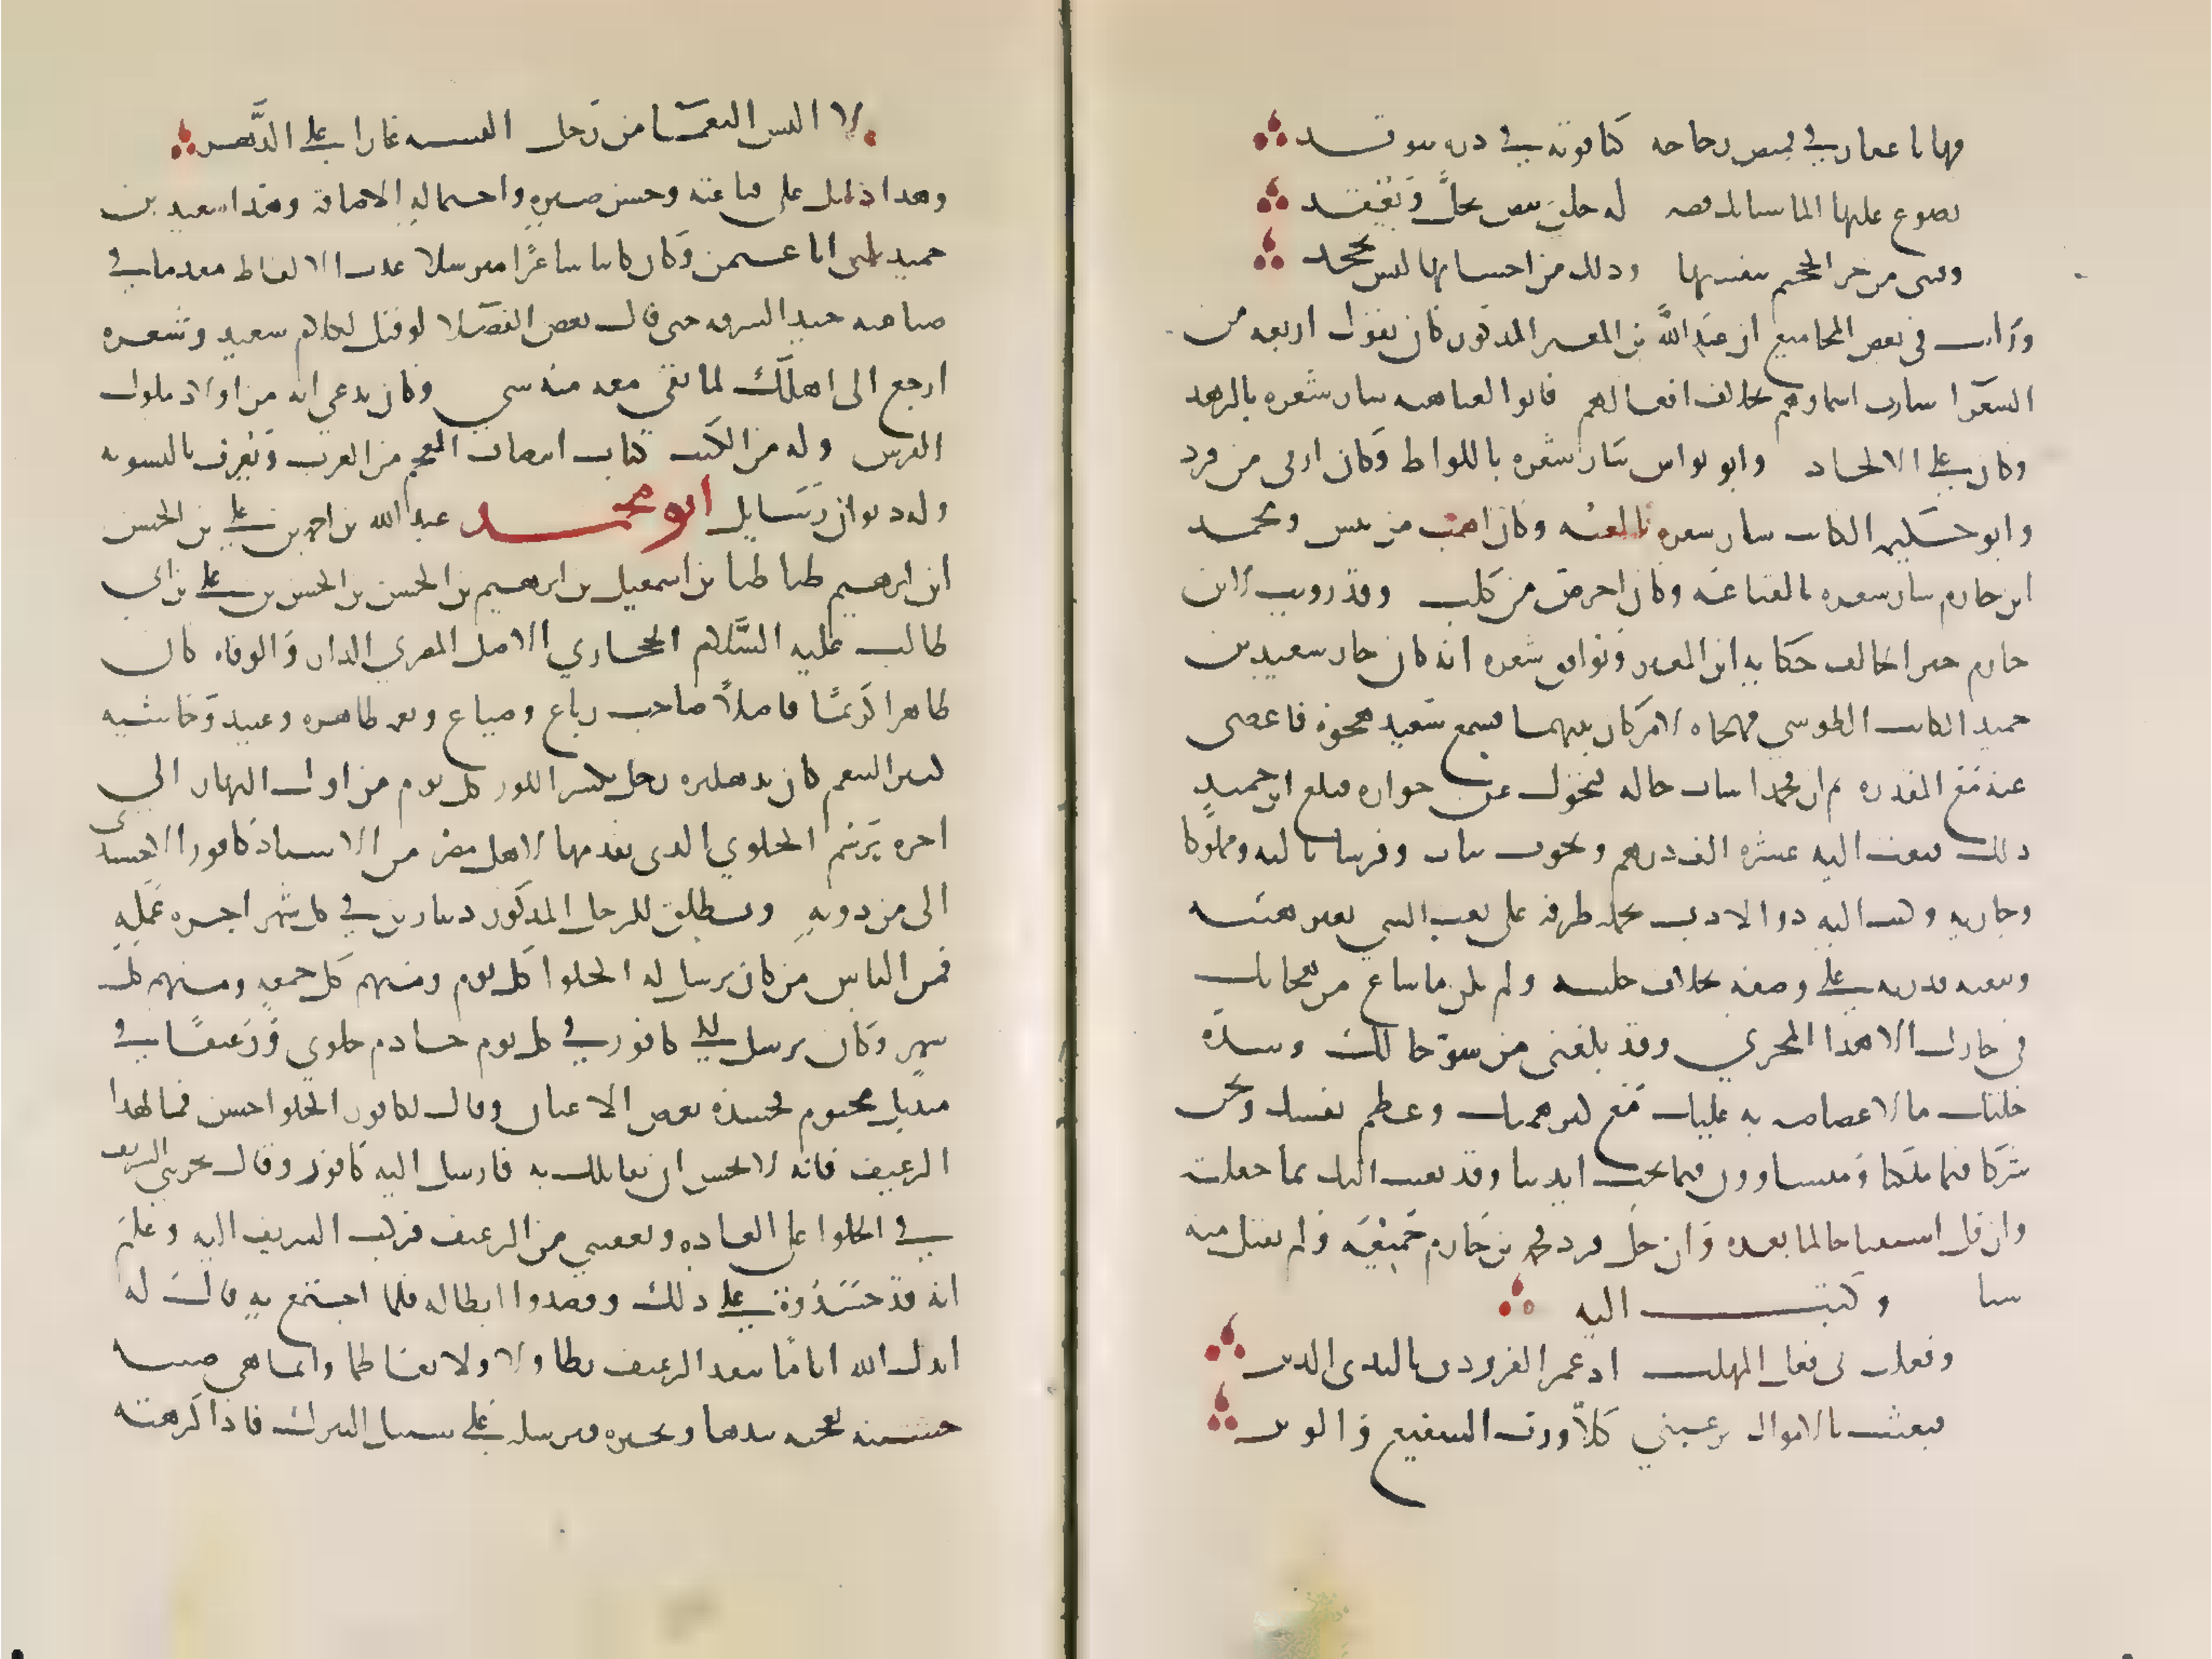 فهاتا عقارا في قميص زجاجه كياقوتة في درة تتوقد
يصوغ عليها الما شباك فضه له حلق بيض تحل وتعقد
وقتني من حر الجحيم بنفسها وذلك من احسانها ليس يجحد
ورايت في بعض المجاميع ان عبد الله بن المعتز المذكور كان يقول اربعه من
الشعرا سارت اسماوهم بخلاف افعالهم فابو العتاهيه سار شعره بالزهد
وكان على الالحاد وابو نواس سار شعره باللواط وكان ازنى من قرد
وابو حكيمه الكاتب سار شعره بالعنه وكان اهب من تيس ومحمد
ابن حازم سار شعره بالقناعه وكان احرص من كلب وقد رويت لابن
حازم خبرا يخالف حكايه ابن المعتز ويوافق شعره انه كان جار سعيد بن
حميد الكاتب الطوسي فهجاه لامر كان بينهما فسمع سعيد هجوه فاغضى
عنه مع القدره ثم ان محمدا ساءت حاله فتحول عن جواره فبلغ ابن حميد
ذلك فبعث اليه عشره الف درهم وتخوت ثياب وفرسا بالته ومملوكا
وجاريه وكتب اليه ذو الادب يحمله ظرفه على نعت الشي بغير هيئته
وتبعثه قدرته على وصفه بخلاف حليته ولم يكن ما شاع من هجائك
في جاريا الا هذا المجرى وقد بلغني من سوء حالك وشدة
خلتك ما لا غضاضه به عليك مع كبر همتك وعظم نفسك ونحن
شركا فيما ملكنا ومتساوون فيما تحت ايدينا وقد بعثت اليك بما جعلته
وان قل استفتاحا لما بعده وان جل فرد محمد بن حازم جميعه ولم يقبل منه
شيا وكتب اليه
وفعلت بي فعل المهلب اذ غمر الفرزدق بالندى الدثر
فبعثت بالاموال ترغبني كلا ورب الشفع والوتر
لا البس النعما من رجل البسته عارا على الدهر
وهذا دليل على قناعته وحسن صبره واحتماله الاضاقة وهذا سعيد بن
حميد يكنى ابا عثمن وكان كاتبا شاعرا مترسلا عذب الالفاظ مقدما في
صناعته جيد السرقه حتى قال بعض الفضلا لو قيل لكلام سعيد وشعره
ارجع الى اهلك لما بقي معه منه شي وكان يدعي انه من اولاد ملوك
الفرس وله من الكتب كتاب انتصاف العجم من العرب ويعرف بالتسويه
وله ديوان رسايل ابو محمد عبد الله بن احمد بن علي بن الحسن
ابن ابرهيم طباطبا بن اسمعيل بن ابرهيم بن الحسن بن الحسن بن علي بن ابي
طالب عليه السلام الحجازي الاصل المصري الدار والوفاه كان
طاهرا كريما فاضلا صاحب رباع وضياع ونعم ظاهره وعبيد وحاشيه
كثير التنعم كان بدهليزه رجل يكسر اللوز كل يوم من اول النهار الى
اخره برسم الحلوي الذى ينفذها لاهل مصر من الاستاذ كافور الاخشيدى
الى من دونه ويطلق للرجل المذكور دينارين في كل شهر اجره عمله
فمن الناس من كان يرسل له الحلوا كل يوم ومنهم كل جمعه ومنهم كل
شهر وكان يرسل الى كافور في كل يوم حلوي ورغيفا في
منديل مختوم فحسده بعض الاعيان وقال لكافور الحلوا حسن فما لهذا
الرغيف فانه لا يحسن ان يقابلك به فارسل اليه كافور وقال يجريني الشريف
في الحلوا على العاده ويعفيني من الرغيف فركب الشريف اليه وعلم
انه قد حسدوه على ذلك وقصدوا ابطاله فلما اجتمع به قال له
ايدك الله انا ما ننفذ الرغيف تطاولا ولا تعاظما وانما هي صبيه
حسنيه تعجنه بيدها وتخبزه فنرسله على سبيل التبرك فاذا كرهته